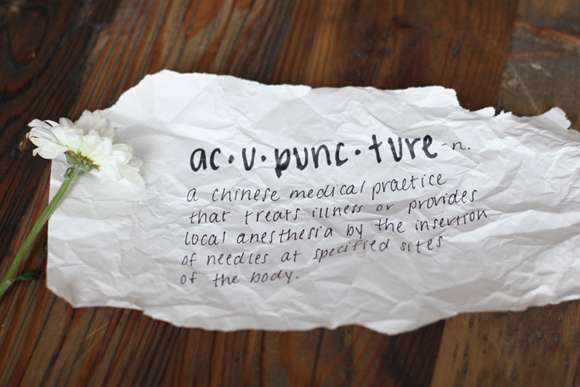 ac·u·punc·ture-n.
a chinese medical practice
that treats illness or provides
local anesthesia by the insertion
of needles at specified sites
of the body.